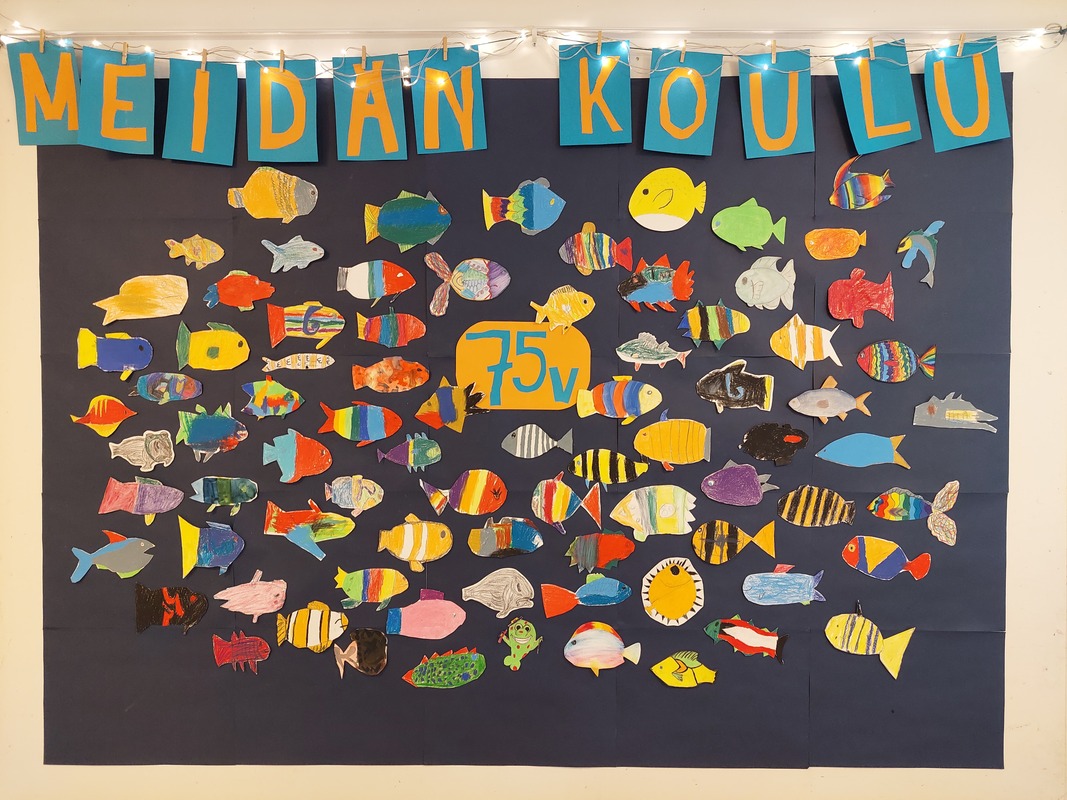 MEIDÄN KOULU
75v